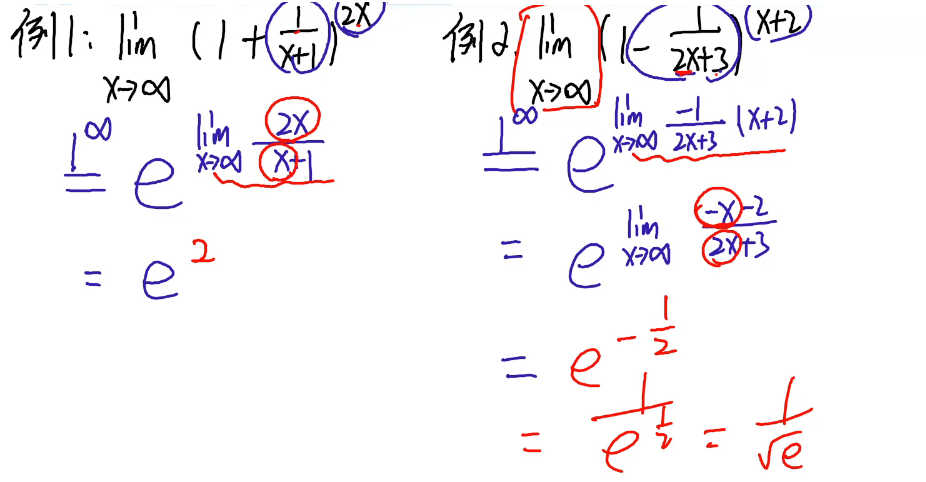 例1: lim x→∞ (1 + 1/(x+1))^(2x)
1^∞ = e^(lim x→∞ 2x/(x+1))
= e^2
例2. lim x→∞ (1 - 1/(2x+3))^(x+2)
1^∞ = e^(lim x→∞ -1/(2x+3) (x+2))
= e^(lim x→∞ (-x-2)/(2x+3))
= e^(-1/2)
= 1/e^(1/2) = 1/√e